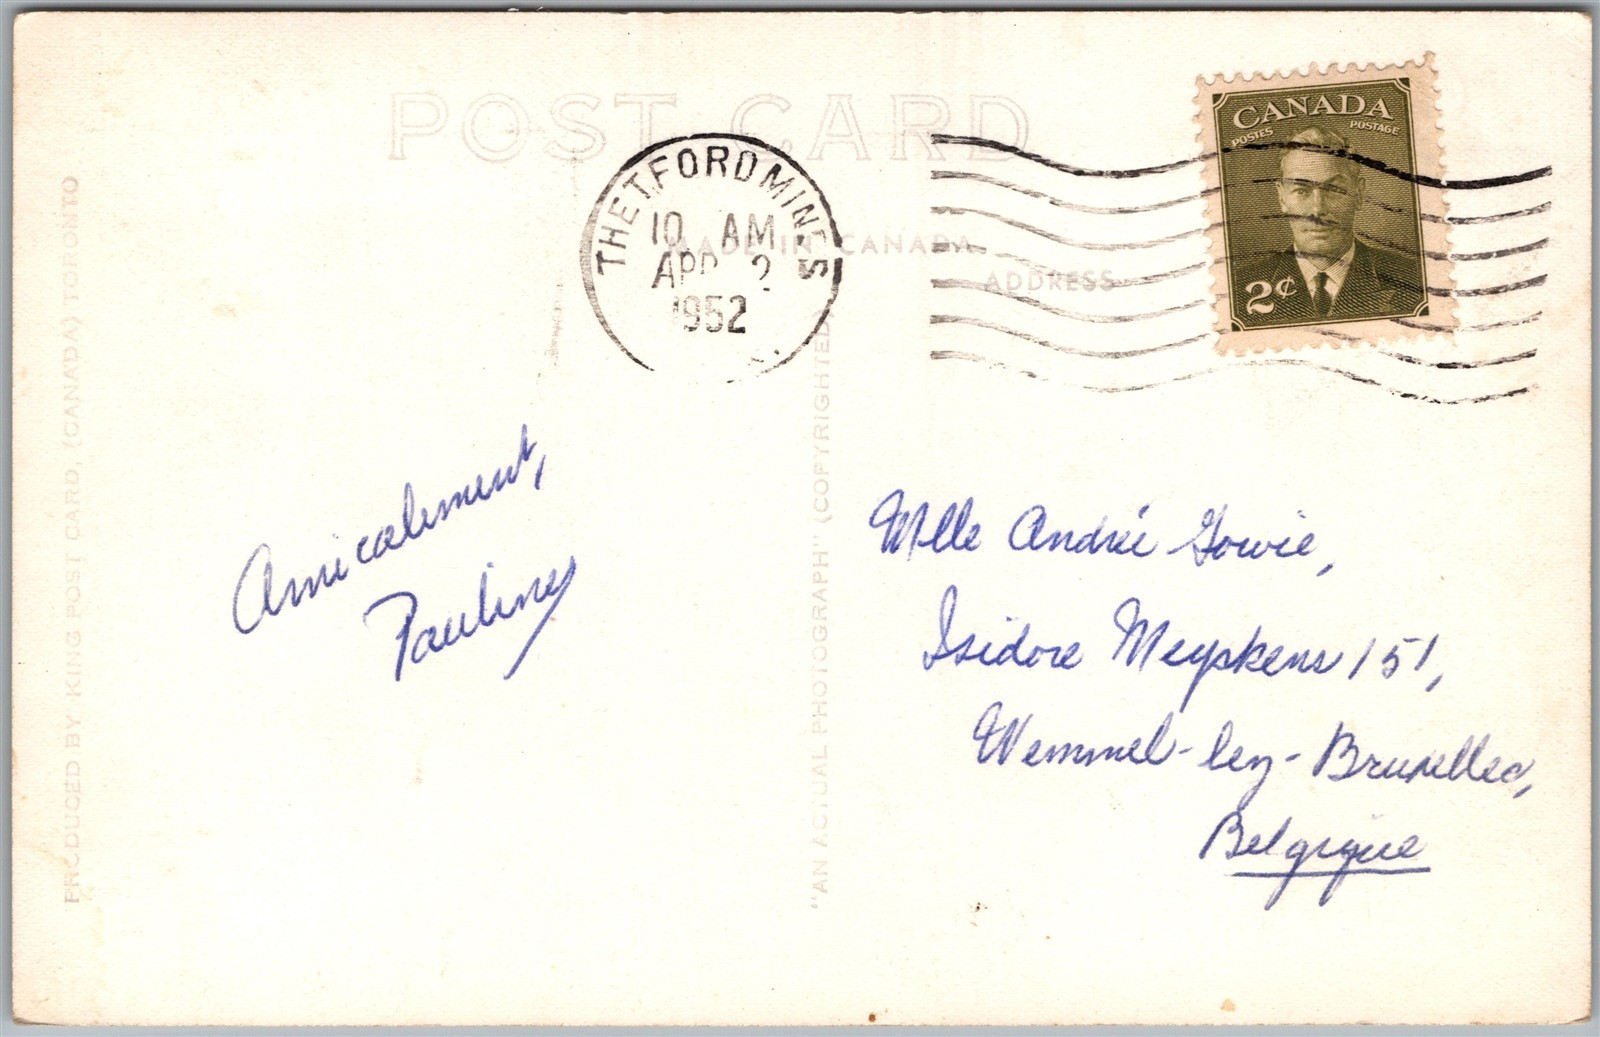 POST CARD
THETFORD MINES
10 AM
APR 2
1952
MADE IN CANADA
ADDRESS
CANADA
POSTES POSTAGE
2¢
PRODUCED BY KING POST CARD, (CANADA) TORONTO
"AN ACTUAL PHOTOGRAPH" (COPYRIGHTED)
Amicalement,
Pauline
Mlle Andrée Gowie,
Isidore Meyskens 151,
Wemmel-lez-Bruxelles,
Belgique